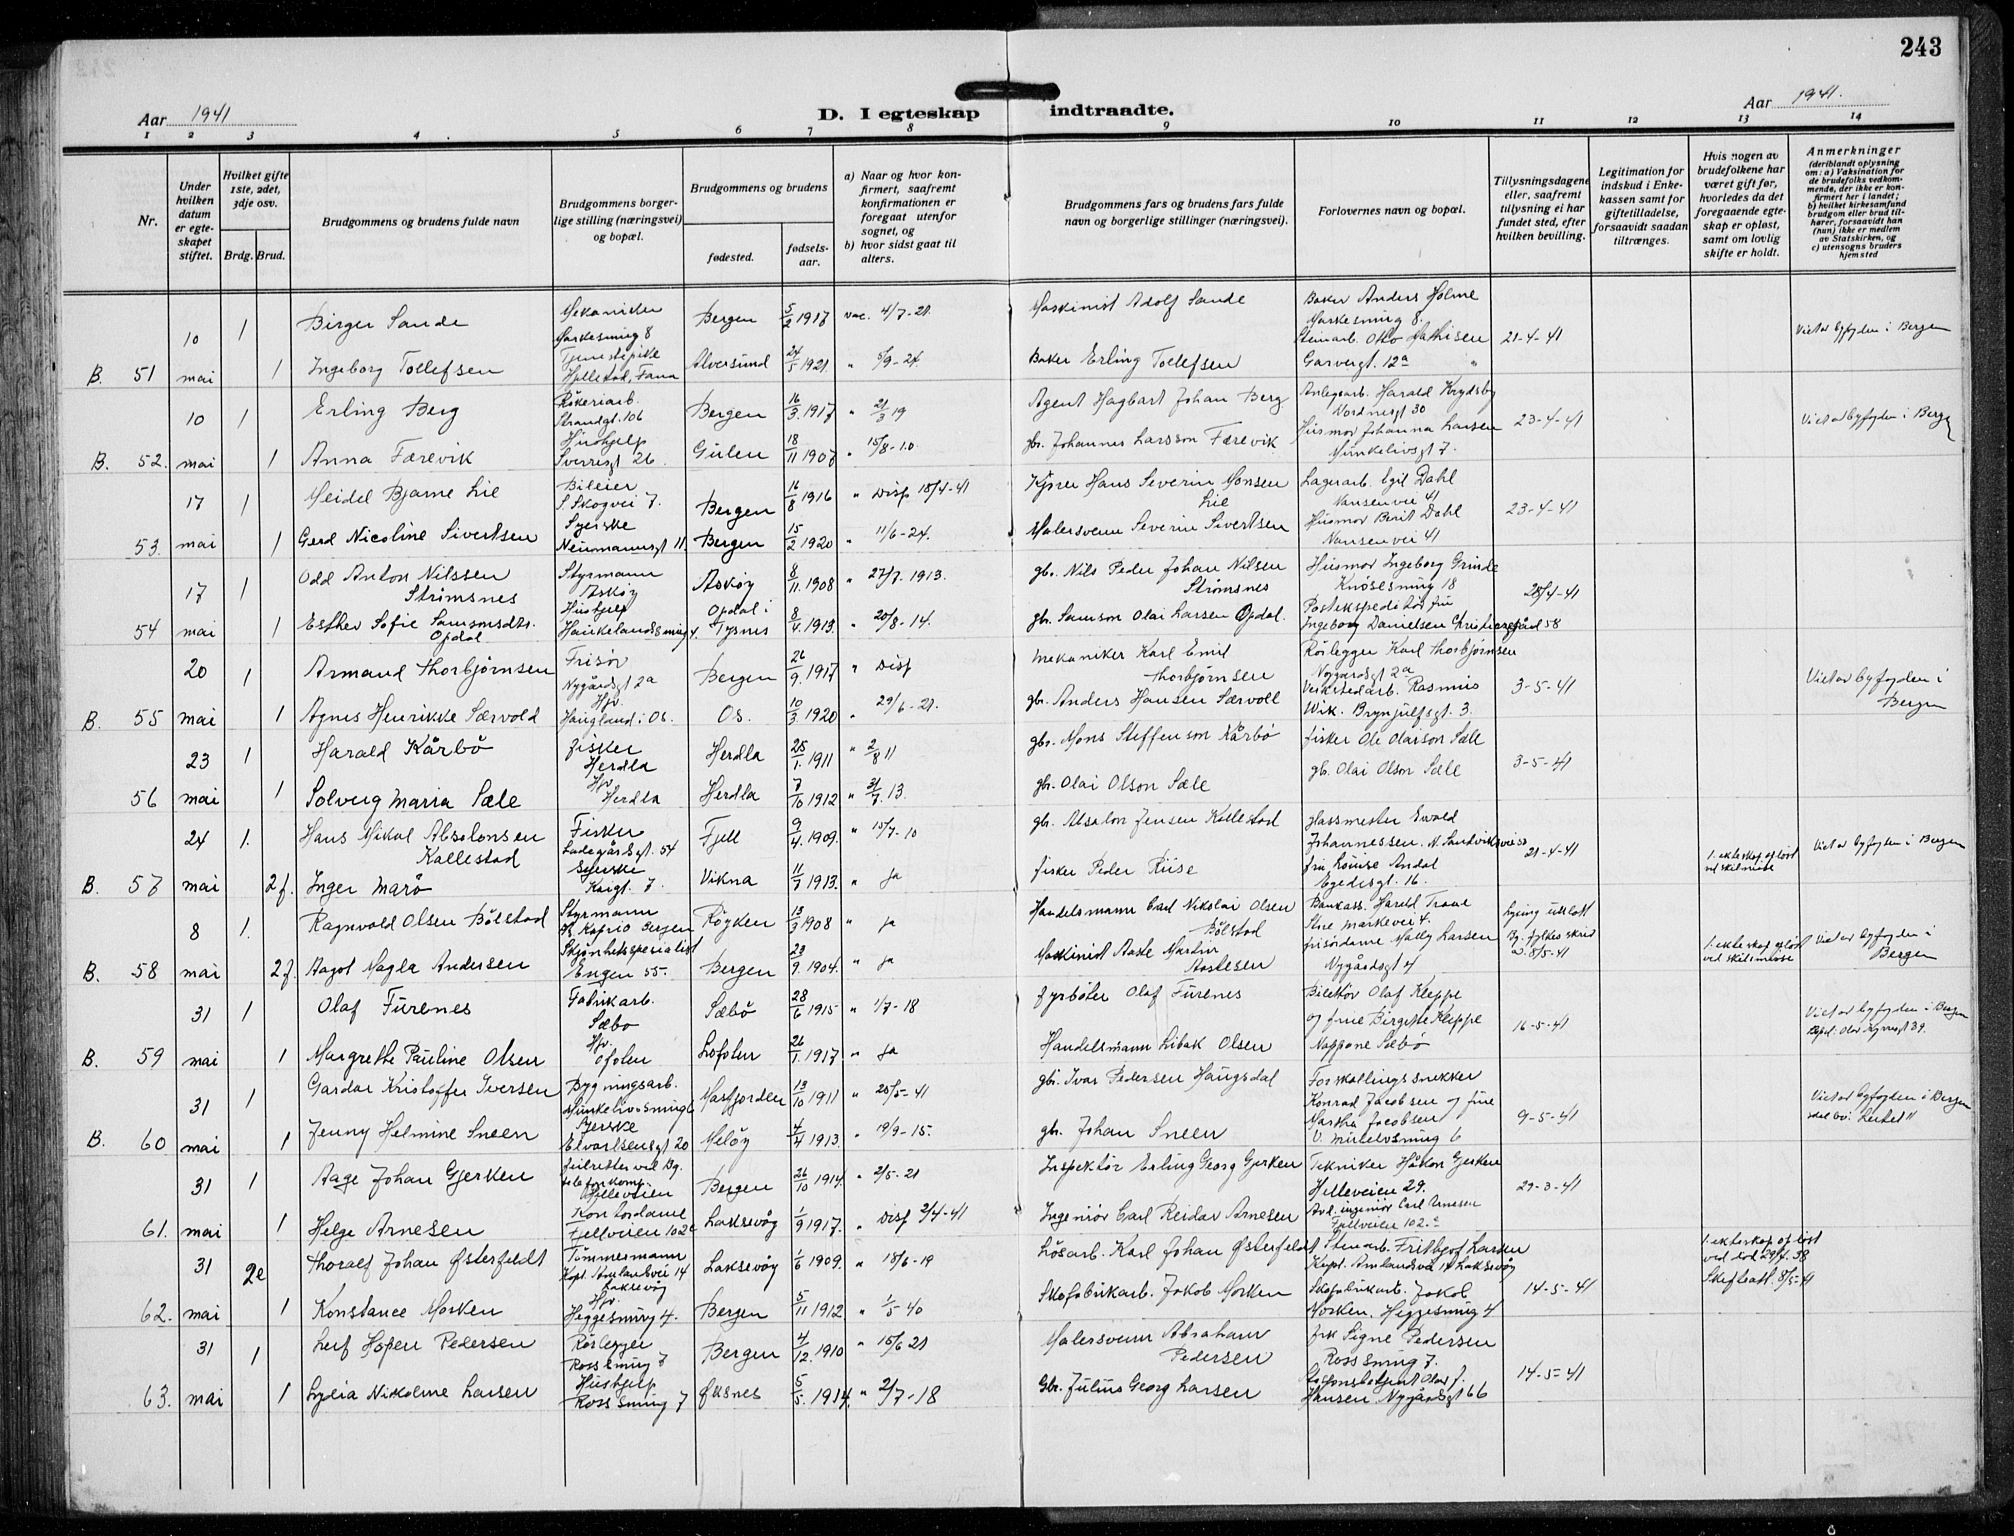 243
Aar 1941
D. Iegteskap indtraadte.
Aar 1941.
1 2 3 4 5 6 7 8 9 10 11 12 13 14
Nr.
Under hvilken datum er egteskapet stiftet.
Hvilket gifte 1ste, 2det, 3dje osv.
Brdg. Brud.
Brudgommens og brudens fulde navn
Brudgommens borgerlige stilling (næringsvei) og bopæl.
Brudgommens og brudens
fødested.
fødselsaar.
a) Naar og hvor konfirmert, saafremt konfirmationen er foregaat utenfor sognet, og
b) hvor sidst gaat til alters.
Brudgommens fars og brudens fars fulde navn og borgerlige stillinger (næringsvei).
Forlovernes navn og bopæl.
Tillysningsdagene eller, saafremt tillysning ei har fundet sted, efter hvilken bevilling.
Legitimation for indskud i Enkekassen samt for giftetilladelse, forsaavidt saadan tiltrænges.
Hvis nogen av brudefolkene har været gift før, hvorledes da det foregaaende egteskap er opløst, samt om lovlig skifte er holdt.
Anmerkninger
(deriblandt oplysning om: a) Vaksination for de brudefolks vedkommende, der ikke er konfirmert her i landet; b) hvilket kirkesamfund brudgom eller brud tilhører, forsaavidt han (hun) ikke er medlem av Statskirken, og c) utensogns bruders hjemsted
10 1 Birger Sande Mekaniker Markesmug 8 Bergen 5/2 1917 vac. 4/7-21 Maskinist Adolf Sande Baker Anders Holme Markesmug 8. 21-4-41 Viet av byfogden i Bergen
B. 51 mai 1 Ingeborg Tollefsen Tjenestepike Hjellestad, Fana Alversund 24/5 1921. " 5/9-24 Baker Erling Tollefsen Stenarb. Otto Mathisen Garvergt. 12a "
10 1 Erling Berg Røkeriarb. Strandgt. 106 Bergen 16/3 1917 " 21/3 19 Agent Hagbart Johan Berg Anlegsarb. Harald Krydsby Nordnesgt 30 23-4-41 Viet av byfogden i Bergen
B. 52. mai 1 Anna Færevik Hushjelp Sverresgt 26. Gulen 18/11 1907 " 15/8-10 gbr. Johannes Larsson Færevik Husmor Johanna Larsen Munkelivsgt 7.
17 1 Meidel Bjarne Lie Bileier S. Skogvei 7. Bergen 16/8 1916 " Disp 18/4-41 Kjører Hans Severin Monsen Lie Lagerarb. Egil Dahl Nansenvei 41 23-4-41
53. mai 1 Gerd Nicoline Sivertsen Syerske Neumannsgt 11. Bergen 15/2 1920 " 11/6-24. Malersvenn Severin Sivertsen Husmor Berit Dahl Nansenvei 41
17 1 Odd Anton Nilssen Strømsnes Styrmann Askøy Askøy 8/11 1908 " 27/7. 1913. gbr. Nils Peder Johan Nilsen Strømsnes Husmor Ingeborg Grinde Knøsesmug 18 28/4-41
54 mai 1 Esther Sofie Samsonsdtr. Opdal Hushjelp Haukelandsmug 4. Opdal i Tysnes 8/4 1913. " 20/8-14. gbr. Samson Olai Larsen Opdal. Postekspeditør fru Ingeborg Danielsen Christiesgård 58
20 1 Armand Thorbjørnsen Frisør Nygårdsgt 2a Bergen 26/9 1917 " Disp mekaniker Karl Emil Thorbjørnsen Rørlegger Karl Thorbjørnsen Nygårdsgt 2a 3-5-41 Viet av byfogden i Bergen
B. 55 mai 1 Agnes Henrikke Særvold Hjv. Haugland i Os. Os. 10/3 1920 " 29/6-21. gbr. Anders Hansen Særvoll Verkstedarb. Rasmus Wik. Brynjulfsgt. 3.
23 1 Harald Kårbø fisker Herdla Herdla 25/1 1911 " 2/8 11 gbr. Mons Steffenson Kårbø fisker Ole Olaison Sæle 3-5-41
56 mai 1 Solveig Maria Sæle Hjv Herdla Herdla 7/10 1912 " 31/7. 13. gbr. Olai Olson Sæle gbr. Olai Olson Sæle
24 1. Hans Mikal Absalonsen Kallestad Fisker Ladegårdsgt. 54 Fjell 9/4 1909. " 15/7-10 gbr. Absalon Jensen Kallestad glassmester Ewald Johannessen. N. Sandviksvei 21-4-41 Viet av byfogden i Bergen
B. 57 mai 2f. Inger Marø Syerske Kaigt. 7. Vikna 11/7 1913. " ja fisker Peder Riise fru Louise Andal Egedisgt. 16. 1. ekteskap opløst ved skilsmisse
8 1. Ragnvald Olsen Bølstad Styrmann Bergen Røyken 13/3 1908 " ja Handelsmann Carl Nikolai Olsen Bølstad Bankass. Harald Traae Ytre markevei 4. Lysing utelatt Viet av byfogden i Bergen
B. 58 mai 2f. Aagot Magla Andersen Skjønhetspesialist Engen 55. Bergen 23/9 1904. " ja Maskinist Aasle Martin Aaslesen frisørdame Mally Larsen Nygårdsgt 4 By. fylkes skriv a. 8/5-41 1. ekteskap opløst ved skilsmisse
31 1 Olaf Furenes Fabrikarb. Sæbø Sæbø 28/6 1915 " 1/7-18 fyrbøter Olaf Furenes Bilektør Olaf Kleppe 16-5-41 Viet av byfogden i Bergen
B. 59 mai 1 Margrethe Pauline Olsen Hjv. Ofoten Lofoten 26/1. 1917. " ja Handelsmann Libak Olsen og frue Birgitte Kleppe Sæbø
31 1 Gardar Kristoffer Iversen Bygningsarb. Munkelivsmug 6 Masfjorden 13/10 1911 " 25/5-41 gbr. Ivar Pedersen Haugsdal Forskallingssnekker Konrad Jacobsen og frue Martha Jacobsen 9-5-41 Viet av byfogden i Bergen
B. 60 mai 1 Jenny Helmine Sneen Syerske Edvardsensgt 20 Meløy 4/4 1913. " 19/9-15. gbr. Johan Sneen smug 6
31 1 Aage Johan Gjerken feilretter ved Bg. telefonkomp. Helleveien Bergen 26/10 1914 " 2/5-21 Inspektør Erling Georg Gjerken Tekniker Håkon Gjerken Helleveien 29. 29-3-41
61. mai 1 Helge Arnesen Kontordame Fjellveien 102c Laksevåg 1/9 1917. " Disp 2/4-41 Ingeniør Carl Reidar Arnesen Avd. ingeniør Carl Arnesen Fjellveien 102.c
31 2e Thoralf Johan Østerfeldt Tømmermann Kapt. Amlandsvei 14 Laksevåg Laksevåg 1/6 1909. " 18/6-19 Løsarb. Karl Johan Østerfeldt Stenarb. Frithjof Larsen Kapt. Amlandsvei 14 Laksevåg 14-5-41 1. ekteskap opløst ved død 29/7. 38 Skifteatt. 8/5-41
62. mai 1 Konstance Morken Hjv. Heggesmug 4. Bergen 5/11 1912 " 1/5-40 Skofabrikarb. Jakob Morken Skofabrikarb. Jakob Morken. Heggesmug 4
31 1 Leif Hopen Pedersen Rørlegger Rosssmug 7 Bergen 4/12 1910 " 15/6 21 Malersvenn Abraham Pedersen frk Signe Pedersen Rosssmug 7. 14-5-41
63. mai 1 Lydia Nikoline Larsen Hushjelp Rosssmug 7 Øksnes 5/5. 1914. " 2/7-18 Gbr. Julius Georg Larsen Hansen Nygårdsgt 66